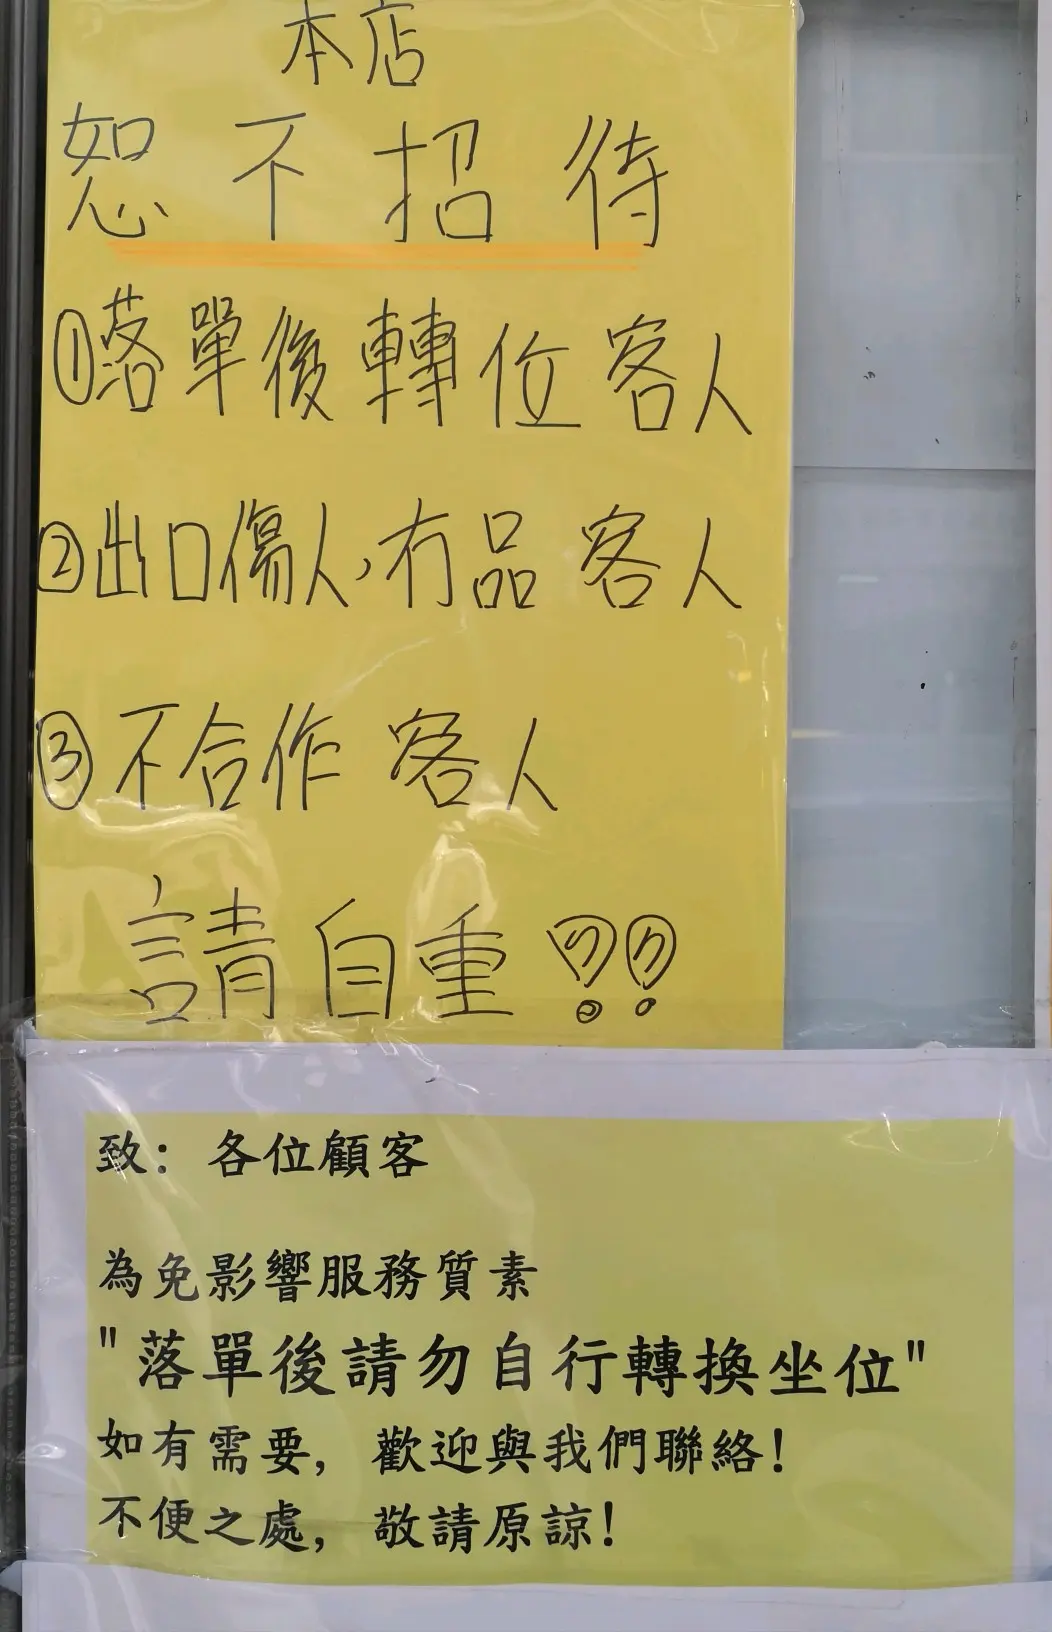 本店
恕不招待
①落單後轉位客人
②出口傷人,冇品客人
③不合作客人
請自重!!
致：各位顧客
為免影響服務質素
"落單後請勿自行轉換坐位"
如有需要，歡迎與我們聯絡!
不便之處，敬請原諒!